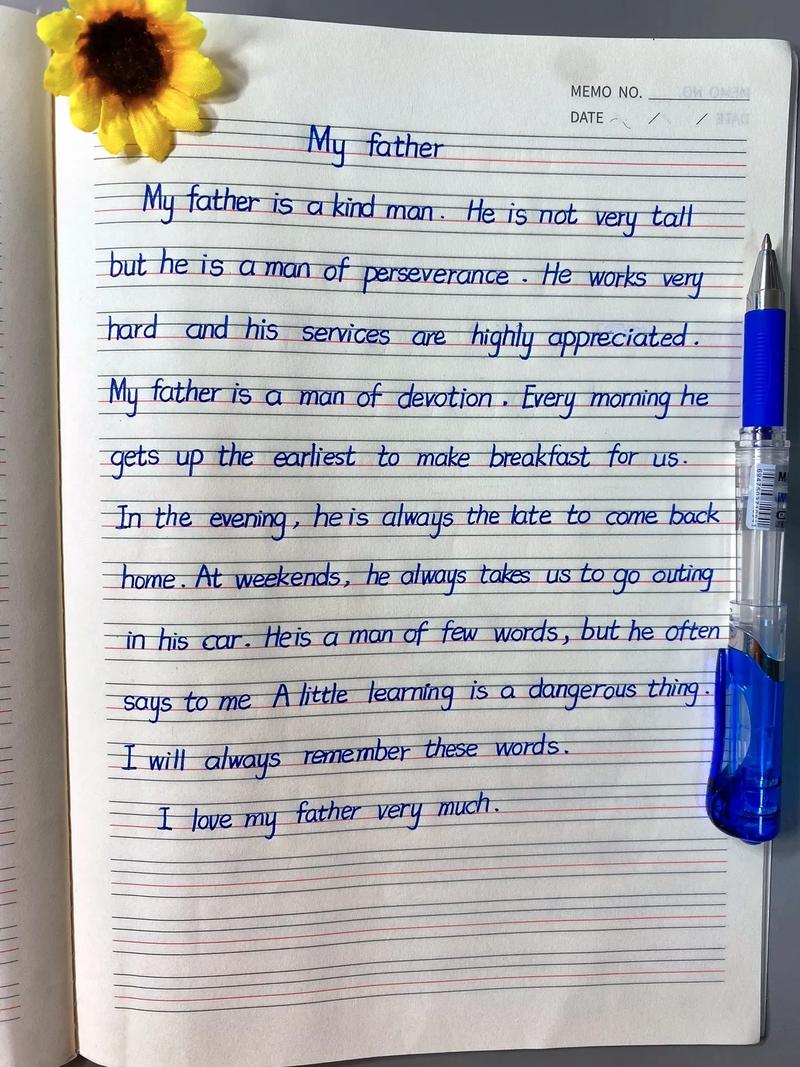 MEMO NO.
DATE / /
My father
My father is a kind man. He is not very tall
but he is a man of perseverance. He works very
hard and his services are highly appreciated.
My father is a man of devotion. Every morning he
gets up the earliest to make breakfast for us.
In the evening, he is always the late to come back
home. At weekends, he always takes us to go outing
in his car. He is a man of few words, but he often
says to me A little learning is a dangerous thing.
I will always remember these words.
I love my father very much.